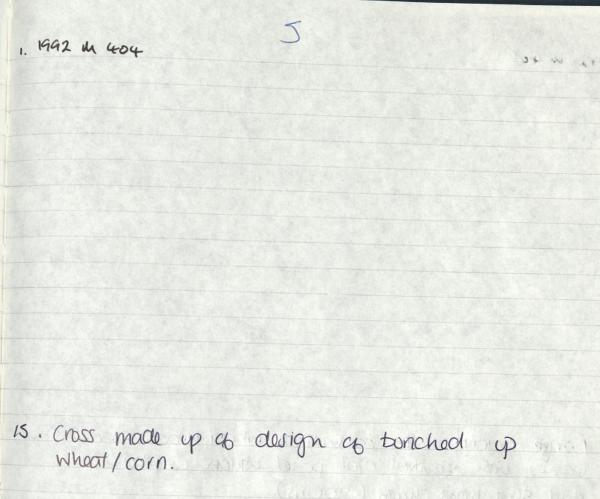 5
1. 1992 M 404
15. Cross made up of design of bunched up
wheat/corn.